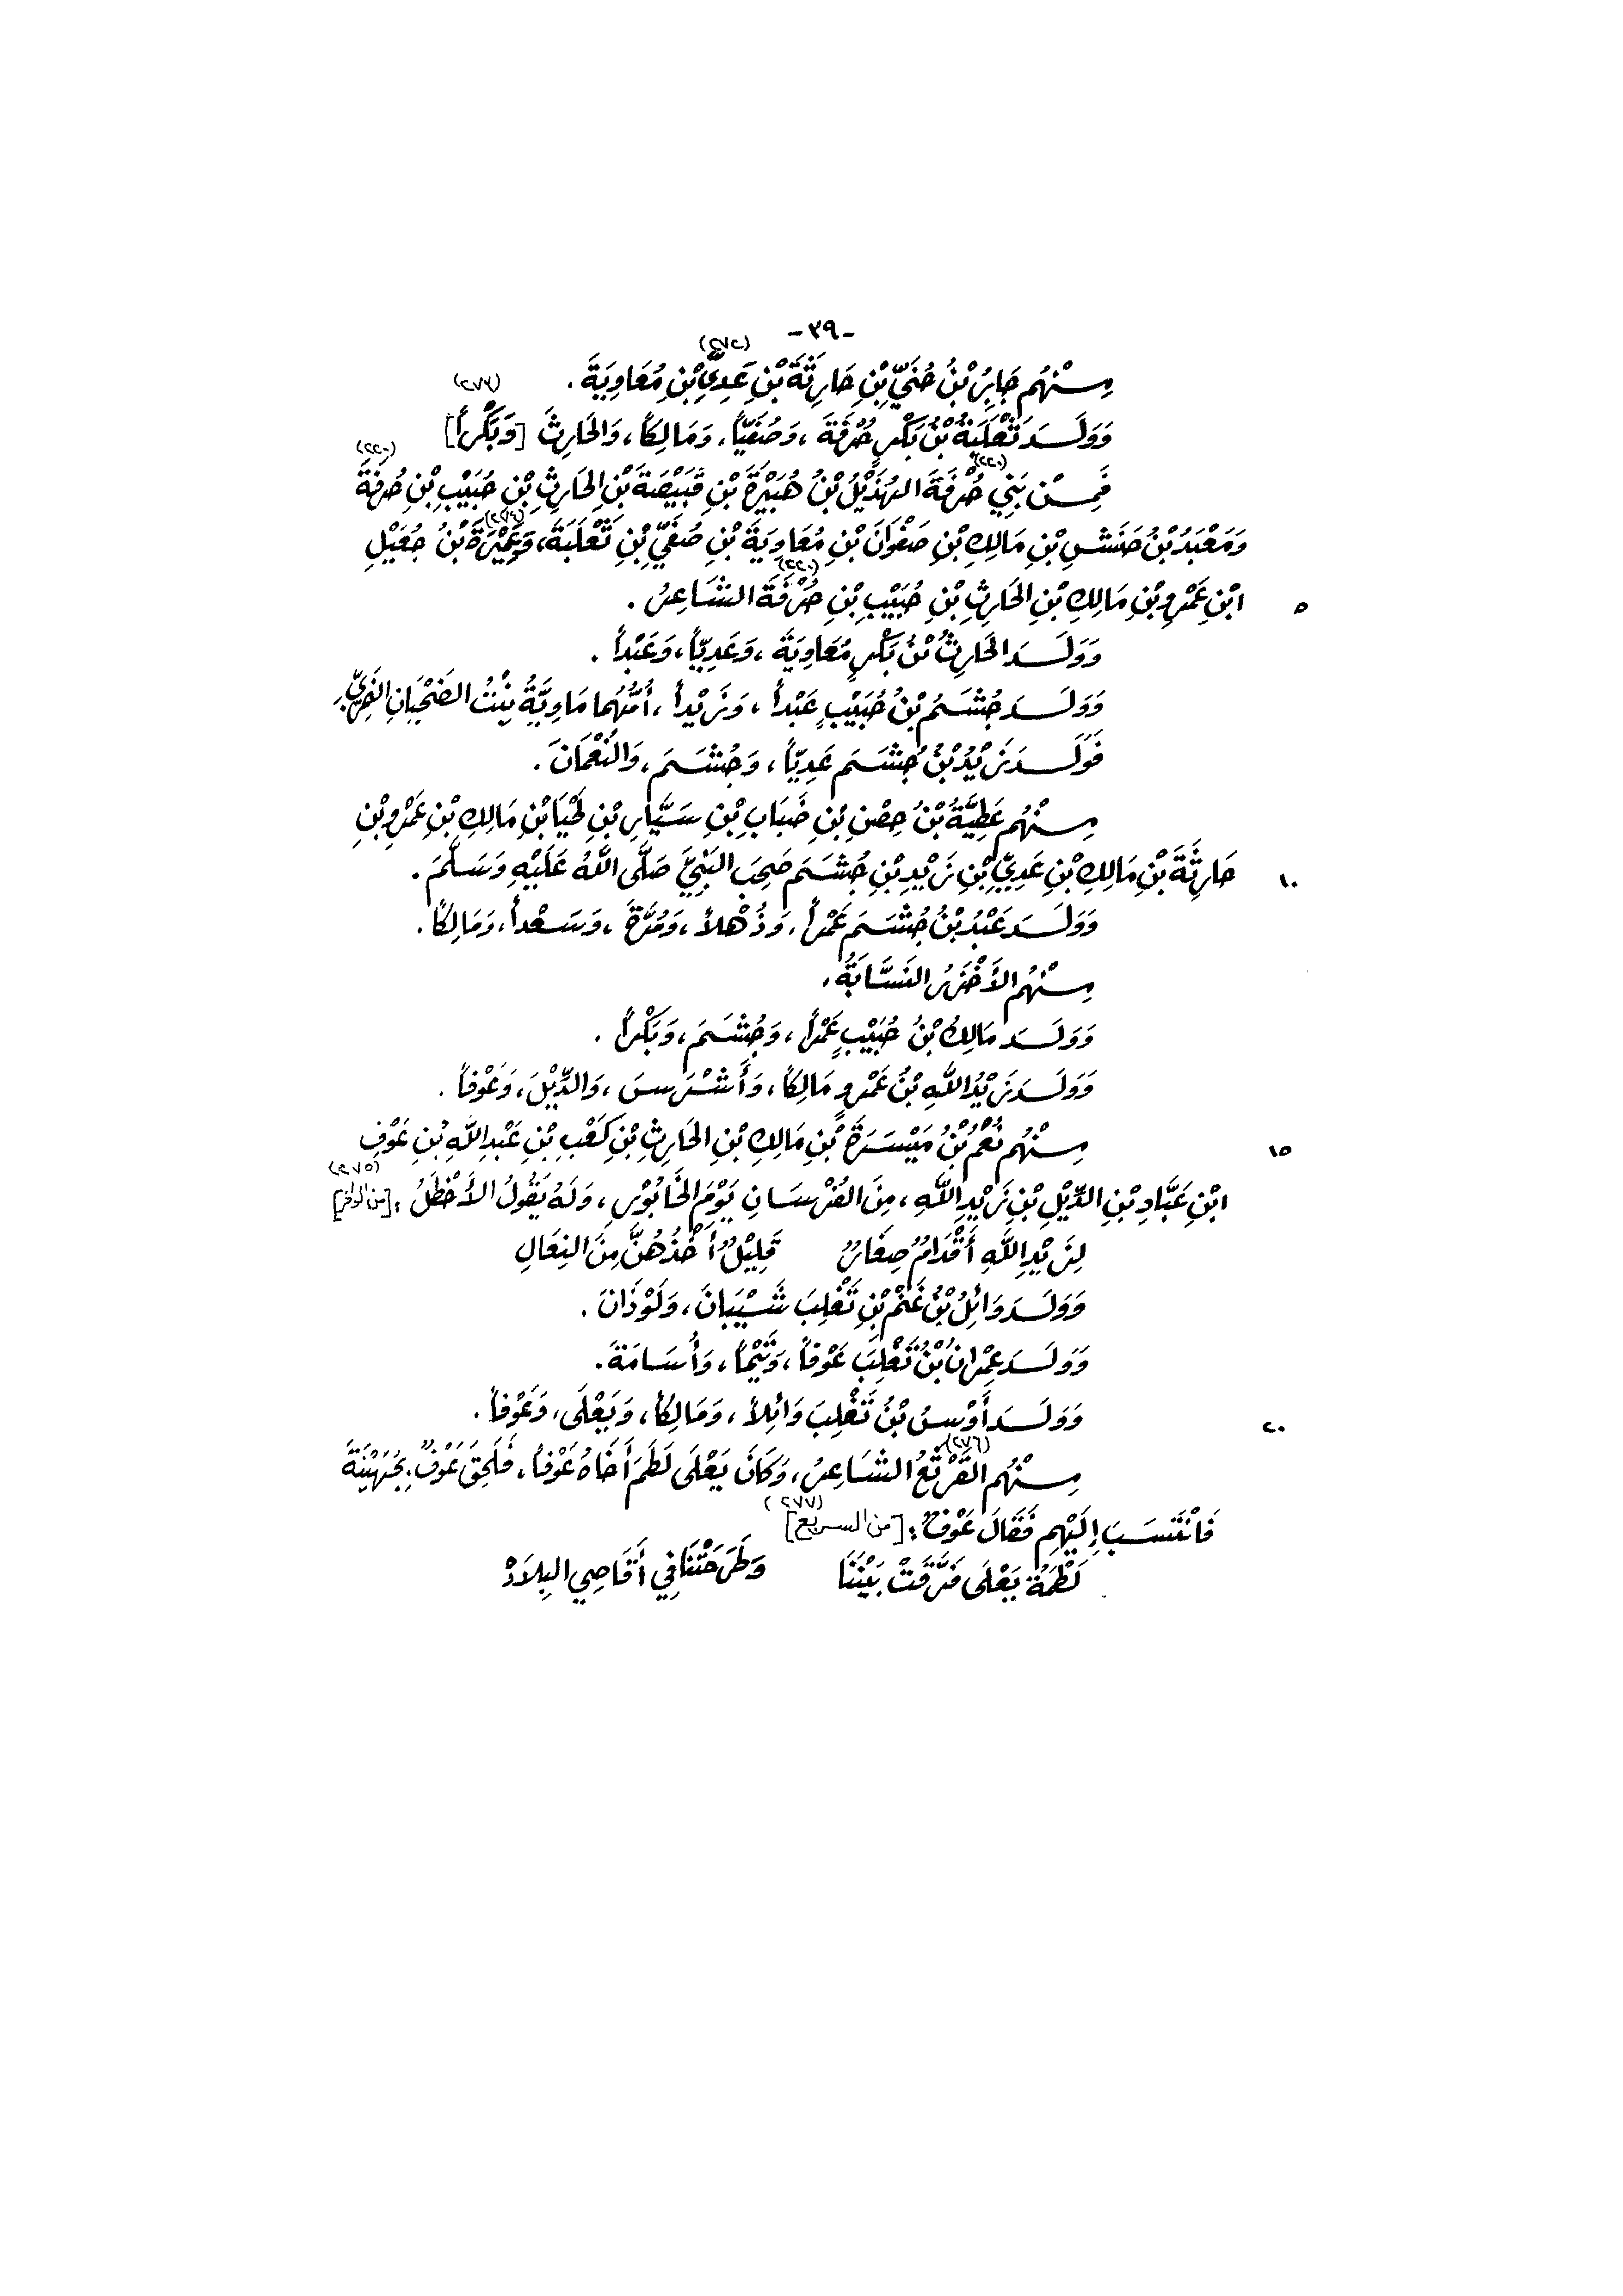 -٣٩-
(٢٧٢)
مِنْهُم جَابِرُ بْنُ حُنَيِّ بْنِ حَارِثَةَ بْنِ عَدِيِّ بْنِ مُعَاوِيَةَ .
(٢٧٣)
وَوَلَدَ ثَعْلَبَةُ بْنُ بَكْرٍ حُرْفَةَ ، وَصُفَيّاً، وَمَالِكاً، وَالحَارِثَ [وَبَكْراً]
(٢٢٠) (٢٢٠)
فَمِنْ بَنِي حُرْفَةَ الهُذَيْلُ بْنُ هُبَيْرَةَ بْنِ قَبِيْصَةَ بْنِ الحَارِثِ بْنِ حُبَيْبِ بْنِ حُرفَةَ
(٢٧٤)
وَمَعْبَدُ بْنُ حَنَشِ بْنِ مَالِكِ بْنِ صَفْوَانَ بْنِ مُعَاوِيَةَ بْنِ صُفَيِّ بْنِ ثَعْلَبَةَ، وَعَمِيْرَةُ بْنُ جُعَيْلِ
(٢٢٠)
٥ ابْنِ عَمْرِو بْنِ مَالِكِ بْنِ الحَارِثِ بْنِ حُبَيْبِ بْنِ حُرْفَةَ الشَّاعِرُ .
وَوَلَدَ الحَارِثُ بْنُ بَكْرٍ مُعَاوِيَةَ ، وَعَدِيّاً، وَعَبْداً .
وَوَلَدَ جُشَمُ بْنُ حُبَيْبٍ عَبْداً ، وَزَيْداً ، أُمُّهُمَا مَاوِيَّةُ بِنْتُ الضَحْيَانِ النَمِرِيِّ.
فَوَلَدَ زَيْدُ بْنُ جُشَمَ عَدِيّاً ، وَجُشَمَ، وَالنُعْمَانَ .
مِنْهُم عَطِيَّةُ بْنُ حِصْنِ بْنِ ضَبَابِ بْنِ سَيَّارِ بْنِ لَحْيَا بْنِ مَالِكِ بْنِ عَمْرِو بْنِ
١٠ حَارِثَةَ بْنِ مَالِكِ بْنِ عَدِيِّ بْنِ زَيْدِ بْنِ جُشَمَ صَحِبَ النَبِيَّ صَلَّى اللَّهُ عَلَيْهِ وَسَلَّمَ .
وَوَلَدَ عَبْدُ بْنُ جُشَمَ عَمْراً، وَذُهْلاً ، وَمُرَّةَ ، وَسَعْداً، وَمَالِكاً .
مِنْهُم الأَخْزَرُ النَسَّابَةُ .
وَوَلَدَ مَالِكُ بْنُ حُبَيْبٍ عَمْراً ، وَجُشَمَ، وَبَكْراً .
وَوَلَدَ زَيْدُ اللَّهِ بْنُ عَمْرٍو مَالِكاً ، وَأَشْرَسَ ، وَالدِّيْلَ، وَعَوْفاً .
١٥ مِنْهُم نُعْمُ بْنُ مَيْسَرَةَ بْنِ مَالِكِ بْنِ الحَارِثِ بْنِ كَعْبِ بْنِ عَبْدِ اللَّهِ بْنِ عَوْفِ
(٢٧٥)
ابْنِ عَبَّادِ بْنِ الدِّيْلِ بْنِ زَيْدِ اللَّهِ ، مِنَ الفُرْسَانِ يَوْمَ الخَابُوْرِ ، وَلَهُ يَقُولُ الأَخْطَلُ : [من الوافر]
لِزَيْدِ اللَّهِ أَقْدَامٌ صِغَارٌ قَلِيْلٌ أَخْذُهُنَّ مِنَ النِعَالِ
وَوَلَدَ وَائِلُ بْنُ غَنْمِ بْنِ تَغْلِبَ شَيْبَانَ ، وَلَوْذَانَ .
وَوَلَدَ عِمْرانُ بْنُ تَغْلِبَ عَوْفاً ، وَتَيْماً ، وَأُسَامَةَ .
٢٠ وَوَلَدَ أَوْسُ بْنُ تَغْلِبَ وَائِلاً ، وَمَالِكاً ، وَيَعْلَى، وَعَوْفاً .
(٢٧٦)
مِنْهُم القَرْثَعُ الشَاعِرُ، وَكَانَ يَعْلَى لَطَمَ أَخَاهُ عَوْفاً ، فَلَحِقَ عَوْفٌ بِجُهَيْنَةَ
(٢٧٧)
فَانْتَسَبَ إِلَيْهِم فَقَالَ عَوْفٌ : [من السريع]
لَطْمَةُ يَعْلَى فَرَّقَتْ بَيْنَنَا وَطَرَحَتْنَا فِي أَقَاصِي البِلاَدْ